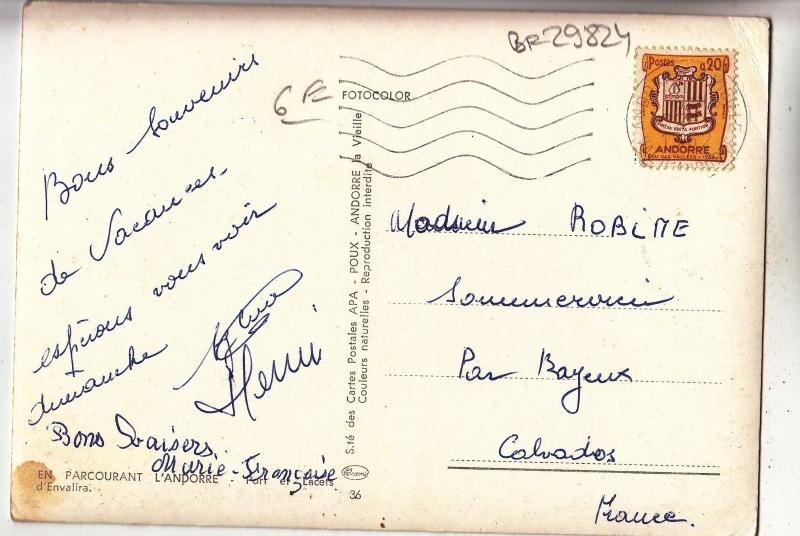 BF 29824
6 F
FOTOCOLOR
Postes 0,20 F
ANDORRE
Bons Souvenirs
de Vacances.
espérons vous voir
dimanche
Henri
Bons baisers
Marie-Françoise
EN PARCOURANT L'ANDORRE - Port et Lacets
d'Envalira.
S.té des Cartes Postales APA - POUX - ANDORRE la Vieille
Couleurs naturelles - Reproduction interdite
36
Madame ROBINE
Sommervieu
Par Bayeux
Calvados
France.